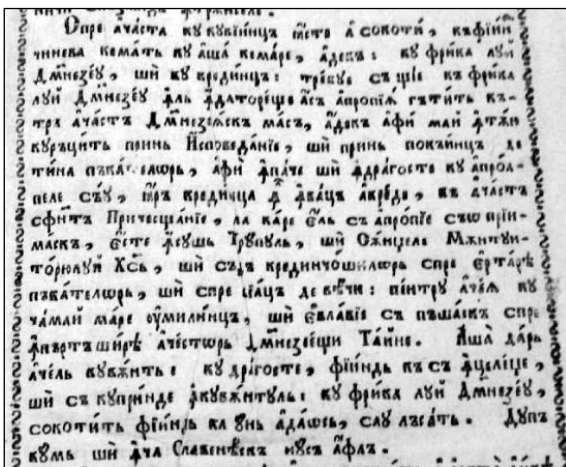 Спре ача́ста кꙋ кꙋвїи́нцъ є҆́сте а҆ сокоти́, къ фїи́и
чинева кема́ть кꙋ а҆ша̀ кема́ре, а҆де́къ : кꙋ фри́ка лꙋй
Дмнезе́ꙋ, ши̂ кꙋ креди́нцъ : тре́бꙋе съ щїе къ фри́ка
лꙋй Дмнезе́ꙋ ꙟль ꙟдаторе́ще а҆съ апропїѧ̀ гъти́ть къ-
трѣ ача́стъ Дмнезеѧ́скъ ма́съ, а҆де́къ а҆фѝ май ꙟтѫ́ю
кꙋръци́ть принь И҆споведа́нїе, ши̂ принь покъи́нцъ де
ти́на пъка́телѡрь, а҆фѝ ꙟпа́че ши̂ ꙟдра́госте кꙋ апро́а-
пеле съ́ꙋ, ꙗ҆ръ креди́нца ꙟл ꙟва́цъ акре́де, къ ача́стъ
сфи́нтъ Причеще́нїе, ла ка́ре є҆́ль съ апро́пїе съѡ при́й-
маскъ, є҆́сте ꙟсꙋшь Трꙋ́пꙋль, ши̂ Сѫ́нџеле Мѫнтꙋи-
то́рюлꙋй Хс҃ь, ши̂ съдъ крединчо́шилѡрь спре є҆рта́рѣ
пъка́телѡрь, ши̂ спре вїа́цъ де ве́чи : пе́нтрꙋ аче́ѧ кꙋ
чама́й ма́ре ᲂу҆мили́нцъ, ши̂ є҆вла́вїе съ пъша́скъ спре
ꙟпъртъши́рѣ аче́сторь Дмнезее́щи Та́йне. А҆ша̀ да́рь
аче́ль кꙋвѫ́нть : кꙋ дра́госте, фїи́ндь къ съ ꙟцеле́џе,
ши̂ съ кꙋпри́нде ꙟкꙋвѫ́нтꙋль : кꙋ фри́ка лꙋй Дмнезе́ꙋ,
сокоти́ть фїи́ндь ка ᲂу҆нь ада́ѡсь, саꙋ лъса́ть. Дꙋпъ
кꙋмь ши̂ ꙟча Славене́скъ нꙋсъ а҆́флъ.